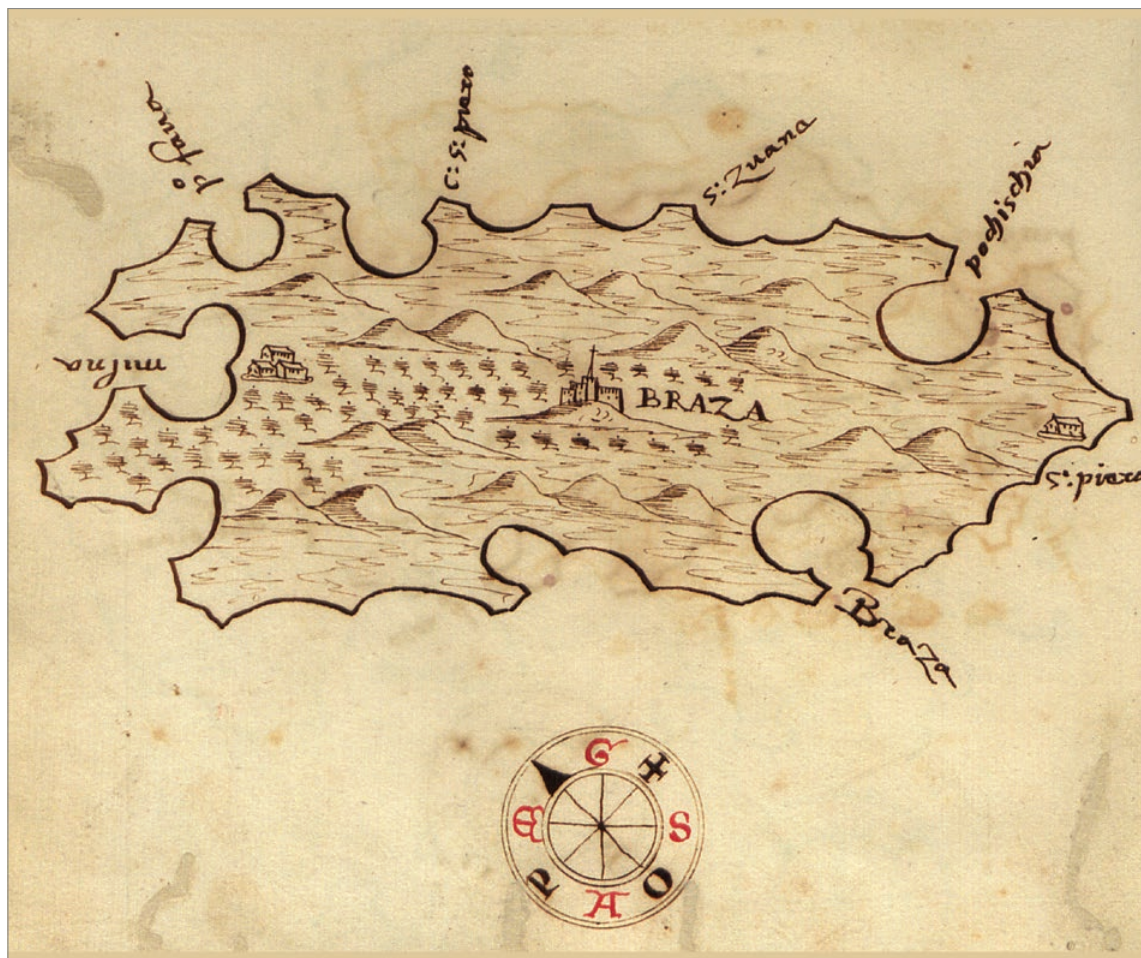 c: s: piero
s: Zuana
pochischia
milna
BRAZA
s: piero
Braza
G
S
O
A
P
M